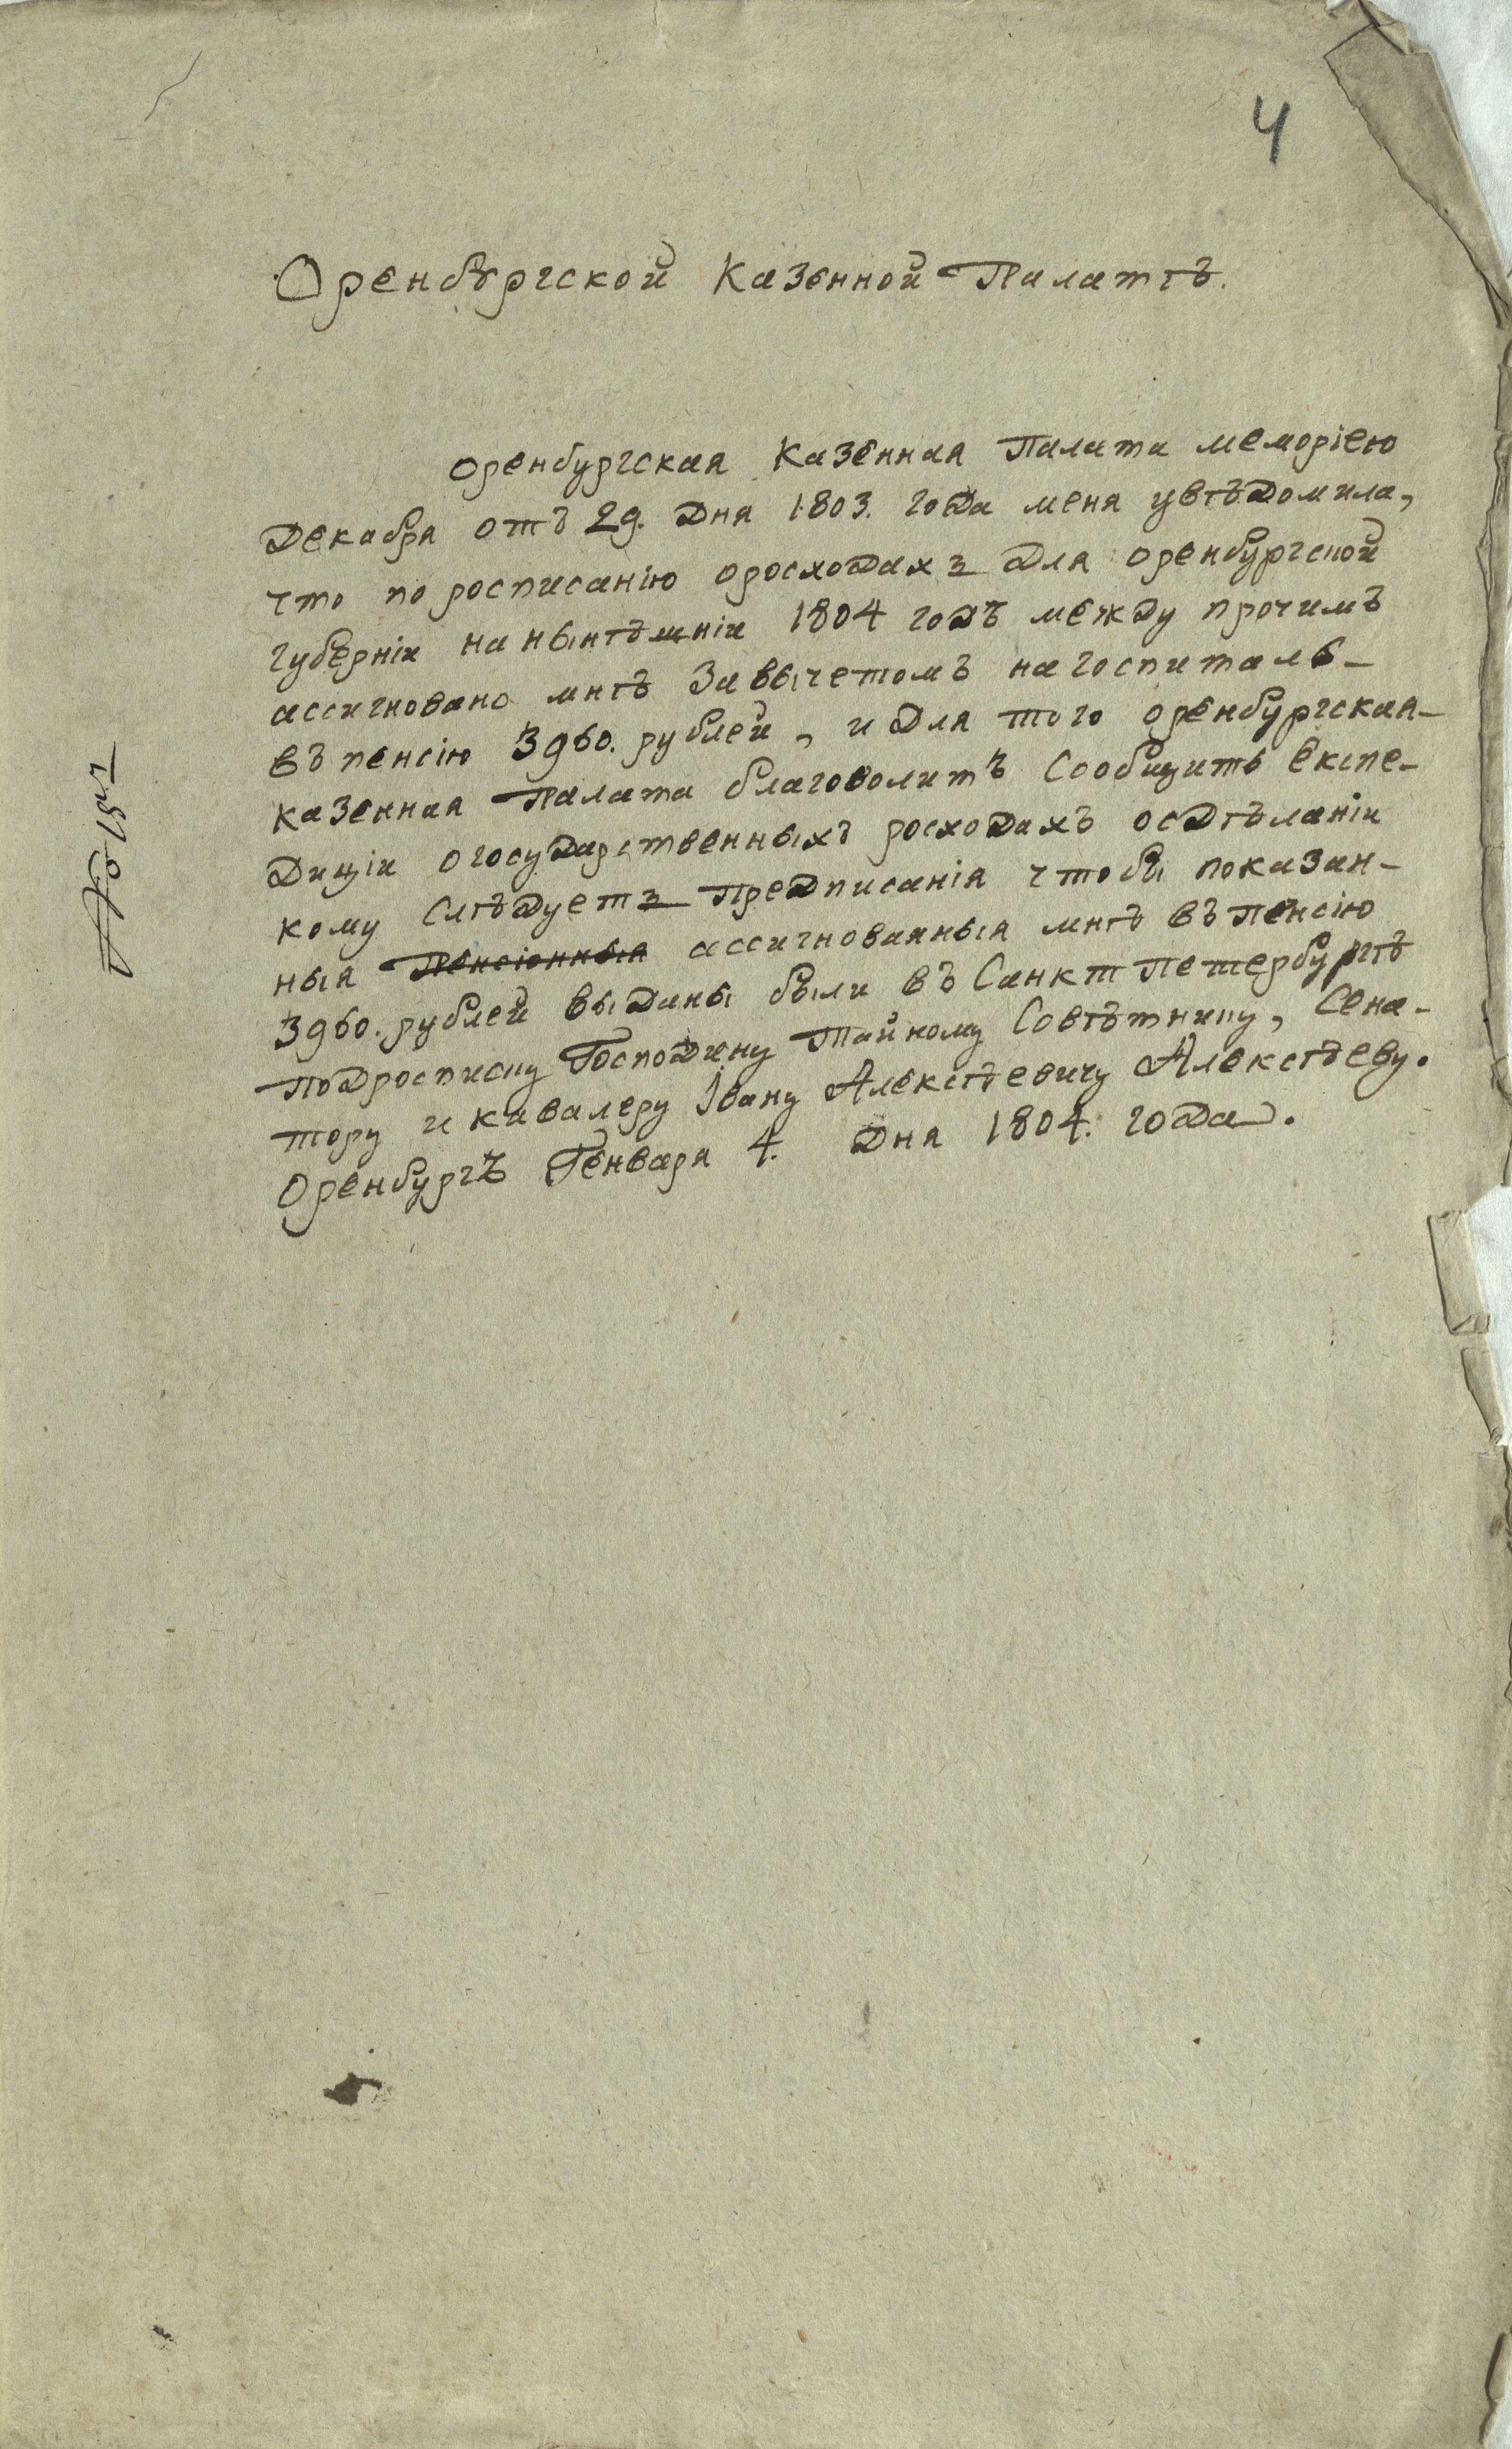 4
Оренбургской Казенной Палатѣ.
Оренбургская Казенная Палата меморіею
Декабря отъ 29. Дня 1803. года меня увѣдомила,
что по росписанію оросходахъ Для Оренбургской
Губерніи на нынѣшніи 1804 годъ между прочимъ
ассигновано мнѣ За вычетомъ на госпиталь-
въ пенсію 3960. рублей, и Для того Оренбургская-
казенная Палата благоволитъ Сообщить Експе-
Диціи о государственныхъ росходахъ осдѣланіи
кому Слѣдуетъ Предписанія чтобы показан-
ныя Пенсіонныя ассигнованныя мнѣ въ пенсію
3960. рублей выданы были въ Санкт Петербургѣ
Подросписку Господину Тайному Совѣтнику, Сена-
тору и кавалеру Ивану Алексѣевичу Алексѣеву.
Оренбургъ Генваря 4. Дня 1804. года.